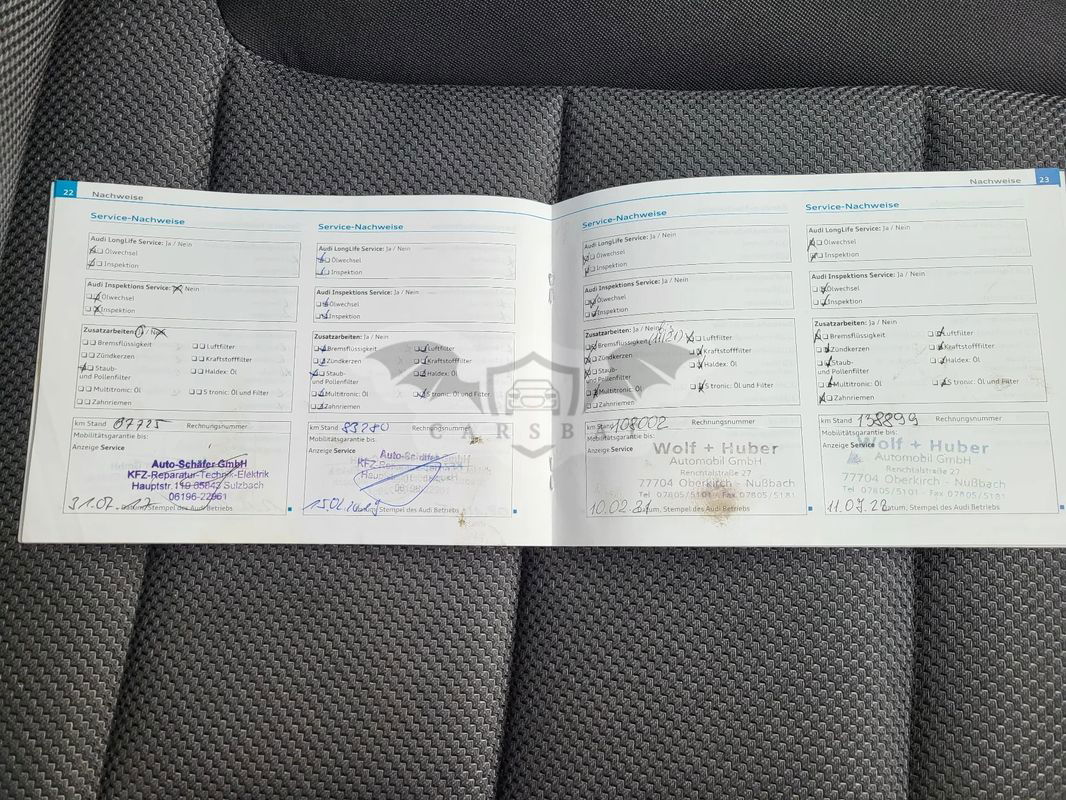 22 Nachweise
Service-Nachweise
Audi LongLife Service: Ja / Nein
Ölwechsel
Inspektion
Audi Inspektions Service: Ja / Nein
Ölwechsel
Inspektion
Zusatzarbeiten: Ja / Nein
Bremsflüssigkeit
Luftfilter
Zündkerzen
Kraftstofffilter
Staub-
und Pollenfilter
Haldex: Öl
Multitronic: Öl
S tronic: Öl und Filter
Zahnriemen
km Stand
Rechnungsnummer
Mobilitätsgarantie bis:
Anzeige Service
Auto-Schäfer GmbH
KFZ-Reparatur-Technik-Elektrik
Hauptstr. 119 65843 Sulzbach
06196-22961
31.07.17
Datum/Stempel des Audi Betriebs
Service-Nachweise
Audi LongLife Service: Ja / Nein
Ölwechsel
Inspektion
Audi Inspektions Service: Ja / Nein
Ölwechsel
Inspektion
Zusatzarbeiten: Ja / Nein
Bremsflüssigkeit
Luftfilter
Zündkerzen
Kraftstofffilter
Staub-
und Pollenfilter
Haldex: Öl
Multitronic: Öl
S tronic: Öl und Filter
Zahnriemen
km Stand 83280
Rechnungsnummer
Mobilitätsgarantie bis:
Anzeige Service
Auto-Schäfer
Datum, Stempel des Audi Betriebs
CARSB
Nachweise 23
Service-Nachweise
Audi LongLife Service: Ja / Nein
Ölwechsel
Inspektion
Audi Inspektions Service: Ja / Nein
Ölwechsel
Inspektion
Zusatzarbeiten: Ja / Nein
Bremsflüssigkeit
Luftfilter
Zündkerzen
Kraftstofffilter
Staub-
und Pollenfilter
Haldex: Öl
Multitronic: Öl
S tronic: Öl und Filter
Zahnriemen
km Stand 108002
Rechnungsnummer
Mobilitätsgarantie bis:
Anzeige Service
Wolf + Huber
Automobil GmbH
Renchtalstraße 27
77704 Oberkirch - Nußbach
Tel. 07805/5101 - Fax 07805/5181
10.02.21
Datum, Stempel des Audi Betriebs
Service-Nachweise
Audi LongLife Service: Ja / Nein
Ölwechsel
Inspektion
Audi Inspektions Service: Ja / Nein
Ölwechsel
Inspektion
Zusatzarbeiten: Ja / Nein
Bremsflüssigkeit
Luftfilter
Zündkerzen
Kraftstofffilter
Staub-
und Pollenfilter
Haldex: Öl
Multitronic: Öl
S tronic: Öl und Filter
Zahnriemen
km Stand 138899
Rechnungsnummer
Mobilitätsgarantie bis:
Anzeige Service
Wolf + Huber
Automobil GmbH
Renchtalstraße 27
77704 Oberkirch - Nußbach
Tel. 07805/5101 - Fax 07805/5181
Datum, Stempel des Audi Betriebs